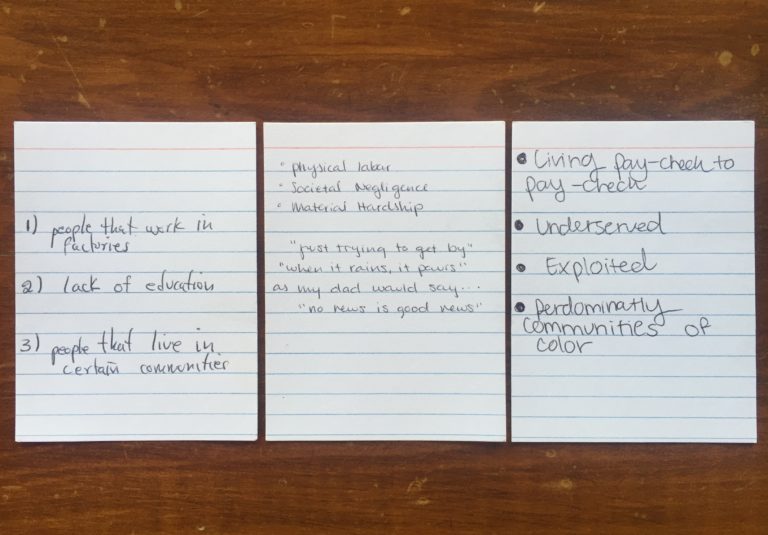 1) people that work in
factories
2) lack of education
3) people that live in
certain communities
° physical labor
° Societal Negligence
° Material Hardship
"just trying to get by"
"when it rains, it pours"
as my dad would say...
"no news is good news"
• Living pay-check to
pay-check
• Underserved
• Exploited
• Perdominatly
communities of
color